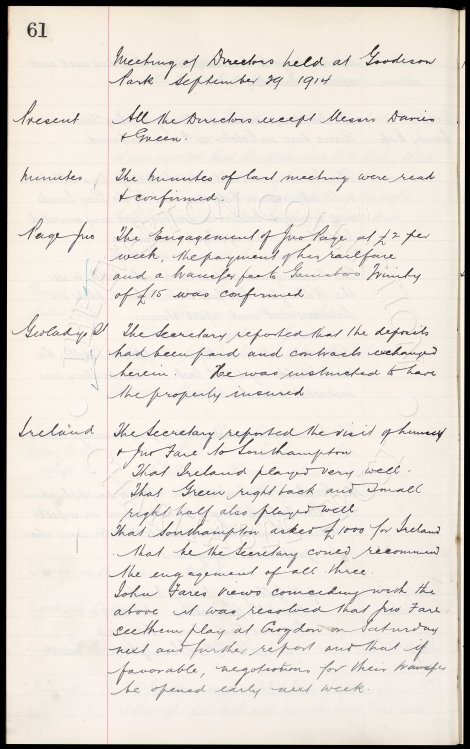 61
Meeting of Directors held at Goodison
Park September 29 1914
Present All the Directors except Messrs Davies
& Green.
Minutes The Minutes of last meeting were read
& confirmed.
Page Jno The Engagement of Jno Page at £2 per
week, the payment of his railfare
and a transfer fee to Gainsboro Trinity
of £15 was confirmed
Gwladys St The Secretary reported that the deposits
had been paid and contracts exchanged
herein. He was instructed to have
the property insured
Ireland The Secretary reported the visit of himself
& Jno Fare to Southampton
That Ireland played very well.
That Green right back and Small
right half also played well
That Southampton asked £1000 for Ireland
that he the Secretary could recommend
the engagement of all three.
John Fares views coinciding with the
above it was resolved that Jno Fare
see them play at Croydon on Saturday
next and further report and that if
favorable, negotiations for their transfer
be opened early next week.